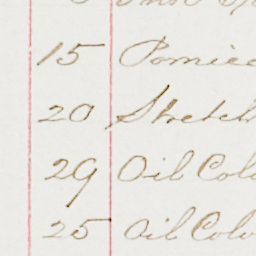 15 Pomice
20 Stretch
29 Oil Colo
25 Oil Colo